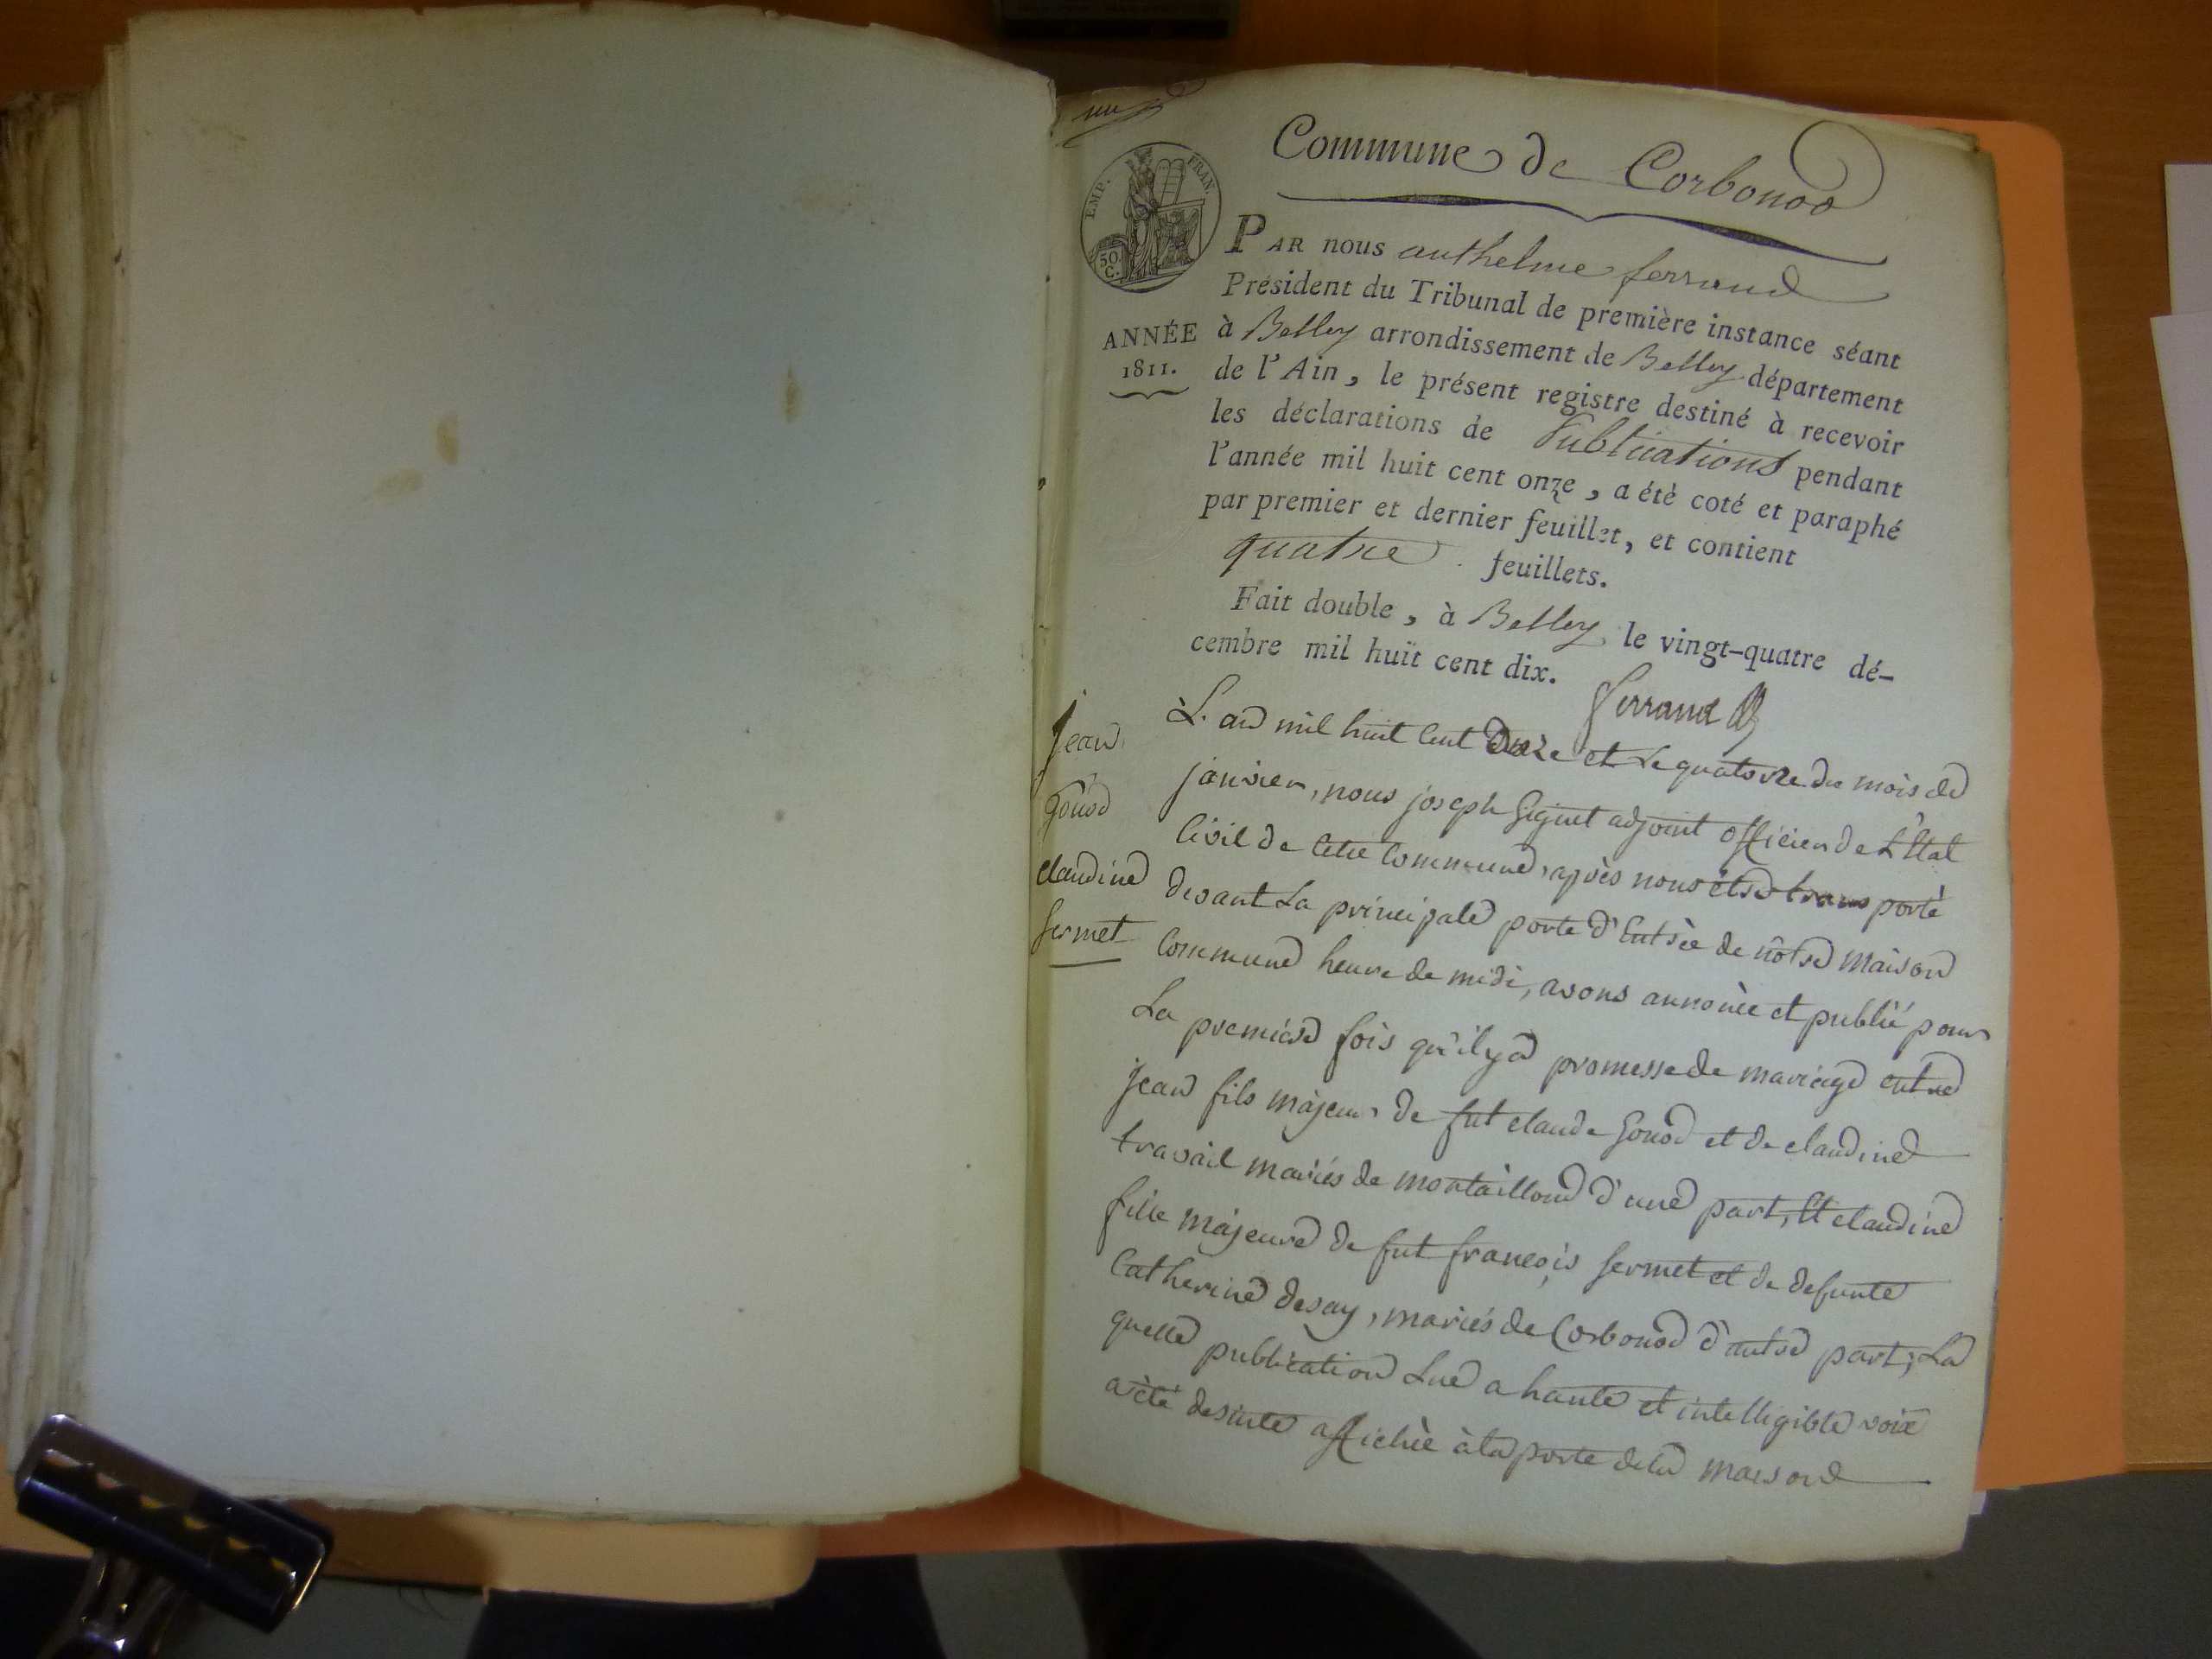 Commune de Corbonod
EMP. FRAN.
50.
C.
PAR nous anthelme ferrand
Président du Tribunal de première instance séant
ANNÉE
1811.
à Belley arrondissement de Belley département
de l'Ain, le présent registre destiné à recevoir
les déclarations de Publications pendant
l'année mil huit cent onze, a été coté et paraphé
par premier et dernier feuillet, et contient
quatre feuillets.
Fait double, à Belley le vingt-quatre dé-
cembre mil huit cent dix.
Ferrand
Jean
Gonod
claudine
fermet
L'an mil huit Cent onze et Le quatorze du mois de
janvier, nous joseph Giguet adjoint officier de L'Etat
Civil de Cette Commune, après nous être transporté
devant La principale porte d'Entrée de nôtre maison
Commune heure de midi, avons annoncé et publié pour
La premiere fois qu'il y a promesse de mariage entre
Jean fils majeur de fut claude Gonod et de claudine
travail mariés de montaillond d'une part, Et claudine
fille majeure de fut françois fermet et de defunte
Catherine desay, mariés de Corbonod d'autre part; La
quelle publication Lue a haute et intelligible voix
a été desuite affichée à la porte de la maison